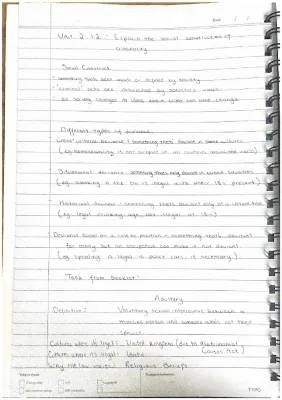 Date / /
Unit 2 1.2 - Explain the social construction of criminality
Social Construct
- Something that's been made or defined by society
- Criminal acts are determined by society's values
so as values changes laws about crime can also change
Different types of deviance:
deviance - Something that's deviant in some cultures
(eg homosexuality is not accepted in all countries around the world)
Situational deviance - Something that's only deviant in certain situations
(eg smoking in the car is illegal with under 18s present)
Historical deviance - something that's deviant only at a certain time
(eg legal drinking age, not illegal at 18+)
Deviance based on a role or position - something that's deviant
for many but an exception can make it not deviant
(eg speeding is legal in police cars, if necessary)
Task from booklet:
Adultery
Definition: Voluntary sexual intercourse between a
married person and someone who's not their
spouse
Culture where it's legal: United Kingdom (due to Matrimonial
Causes Act)
Culture where it's illegal:
Why the law exists: Religious Beliefs